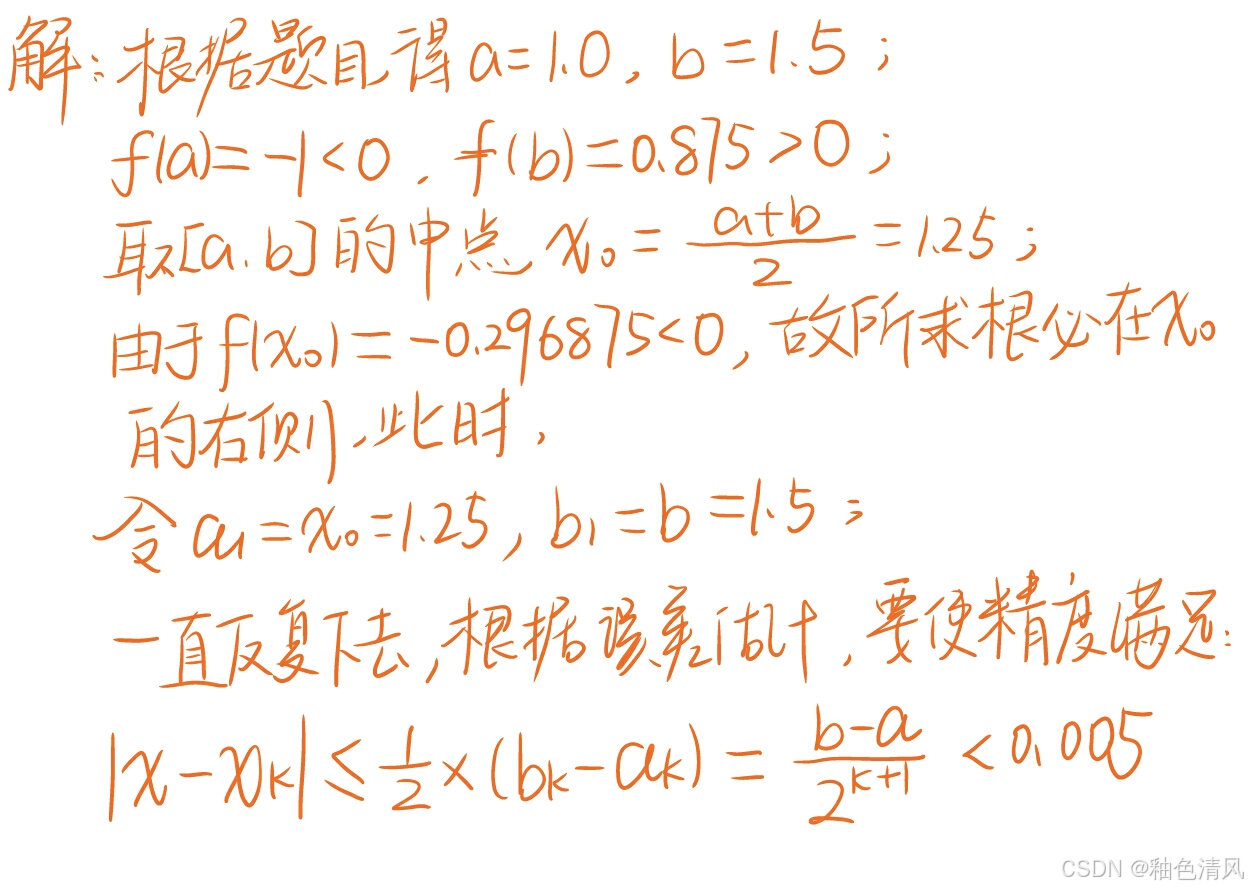 解：根据题目，得a=1.0, b=1.5；
f(a)=-1<0, f(b)=0.875>0；
取[a,b]的中点 x₀ = \frac{a+b}{2} = 1.25；
由于f(x₀)=-0.296875<0, 故所求根必在x₀
的右侧,此时,
令a₁=x₀=1.25, b₁=b=1.5；
一直反复下去,根据误差估计,要使精度满足:
|x-x_k| ≤ \frac{1}{2}×(b_k-a_k) = \frac{b-a}{2^{k+1}} < 0.005
CSDN @釉色清风